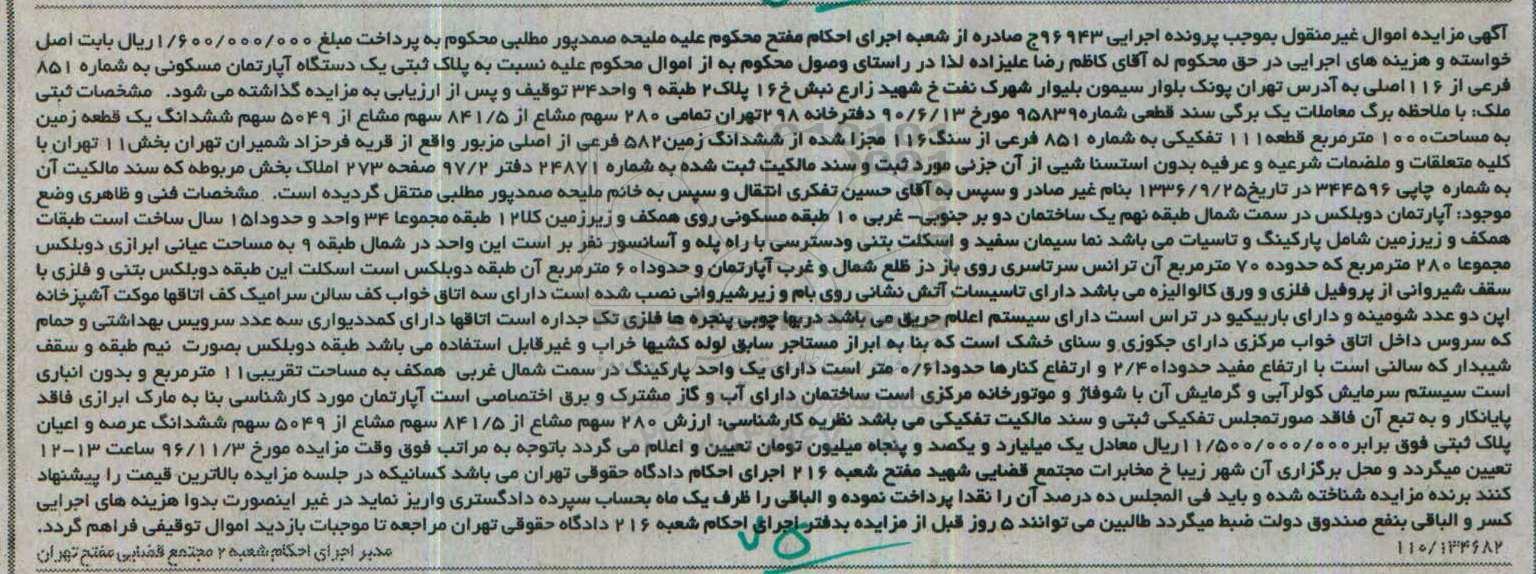 آگهی مزایده اموال غیرمنقول بموجب پرونده اجرایی ۹۶۹۴۳ج صادره از شعبه اجرای احکام مفتح محکوم علیه ملیحه صمدپور مطلبی محکوم به پرداخت مبلغ ۱/۶۰۰/۰۰۰/۰۰۰ریال بابت اصل
خواسته و هزینه های اجرایی در حق محکوم له آقای کاظم رضا علیزاده لذا در راستای وصول محکوم به از اموال محکوم علیه نسبت به پلاک ثبتی یک دستگاه آپارتمان مسکونی به شماره ۸۵۱
فرعی از ۱۱۶اصلی به آدرس تهران پونک بلوار سیمون بلیوار شهرک نفت خ شهید زارع نبش خ۱۶ پلاک۲ طبقه ۹ واحد۳۴ توقیف و پس از ارزیابی به مزایده گذاشته می شود. مشخصات ثبتی
ملک: با ملاحظه برگ معاملات یک برگی سند قطعی شماره۹۵۸۳۹ مورخ ۹۰/۶/۱۳ دفترخانه ۲۹۸تهران تمامی ۲۸۰ سهم مشاع از ۸۴۱/۵ سهم مشاع از ۵۰۴۹ سهم ششدانگ یک قطعه زمین
به مساحت۱۰۰۰ مترمربع قطعه۱۱۱ تفکیکی به شماره ۸۵۱ فرعی از سنگ۱۱۶ مجزا شده از ششدانگ زمین۵۸۲ فرعی از اصلی مزبور واقع از قریه فرحزاد شمیران تهران بخش۱۱ تهران با
کلیه متعلقات و ملضمات شرعیه و عرفیه بدون استسنا شیی از آن جزئی مورد ثبت و سند مالکیت ثبت شده به شماره ۲۴۸۷۱ دفتر ۹۷/۲ صفحه ۲۷۳ املاک بخش مربوطه که سند مالکیت آن
به شماره چاپی ۳۴۴۵۹۶ در تاریخ۱۳۳۶/۹/۲۵ بنام غیر صادر و سپس به آقای حسین تفکری انتقال و سپس به خانم ملیحه صمدپور مطلبی منتقل گردیده است. مشخصات فنی و ظاهری وضع
موجود: آپارتمان دوبلکس در سمت شمال طبقه نهم یک ساختمان دو بر جنوبی- غربی ۱۰ طبقه مسکونی روی همکف و زیرزمین کلا۱۲ طبقه مجموعا ۳۴ واحد و حدودا۱۵ سال ساخت است طبقات
همکف و زیرزمین شامل پارکینگ و تاسیات می باشد نما سیمان سفید و اسکلت بتنی ودسترسی با راه پله و آسانسور نفر بر است این واحد در شمال طبقه ۹ به مساحت عیانی ابرازی دوبلکس
مجموعا ۲۸۰ مترمربع که حدوده ۷۰ مترمربع آن ترانس سرتاسری روی باز دز ظلع شمال و غرب آپارتمان و حدودا ۶۰ مترمربع آن طبقه دوبلکس است اسکلت این طبقه دوبلکس بتنی و فلزی با
سقف شیروانی از پروفیل فلزی و ورق کالوالیزه می باشد دارای تاسیسات آتش نشانی روی بام و زیرشیروانی نصب شده است دارای سه اتاق خواب کف سالن سرامیک کف اتاقها موکت آشپزخانه
اپن دو عدد شومینه و دارای باربیکیو در تراس است دارای سیستم اعلام حریق می باشد دربها چوبی پنجره ها فلزی تک جداره است اتاقها دارای کمددیواری سه عدد سرویس بهداشتی و حمام
که سروس داخل اتاق خواب مرکزی دارای جکوزی و سنای خشک است که بنا به ابراز مستاجر سابق لوله کشیها خراب و غیرقابل استفاده می باشد طبقه دوبلکس بصورت نیم طبقه و سقف
شیبدار که سالنی است با ارتفاع مفید حدودا۲/۴۰ و ارتفاع کنارها حدودا۰/۶۱ متر است دارای یک واحد پارکینگ در سمت شمال غربی همکف به مساحت تقریبی۱۱ مترمربع و بدون انباری
است سیستم سرمایش کولرآبی و گرمایش آن با شوفاژ و موتورخانه مرکزی است ساختمان دارای آب و گاز مشترک و برق اختصاصی است آپارتمان مورد کارشناسی بنا به مارک ابرازی فاقد
پایانکار و به تبع آن فاقد صورتمجلس تفکیکی ثبتی و سند مالکیت تفکیکی می باشد نظریه کارشناسی: ارزش ۲۸۰ سهم مشاع از ۸۴۱/۵ سهم مشاع از ۵۰۴۹ سهم ششدانگ عرصه و اعیان
پلاک ثبتی فوق برابر۱۱/۵۰۰/۰۰۰/۰۰۰ریال معادل یک میلیارد و یکصد و پنجاه میلیون تومان تعیین و اعلام می گردد باتوجه به مراتب فوق وقت مزایده مورخ ۹۶/۱۱/۳ ساعت ۱۳-۱۲
تعیین میگردد و محل برگزاری آن شهر زیبا خ مخابرات مجتمع قضایی شهید مفتح شعبه ۲۱۶ اجرای احکام دادگاه حقوقی تهران می باشد کسانیکه در جلسه مزایده بالاترین قیمت را پیشنهاد
کنند برنده مزایده شناخته شده و باید فی المجلس ده درصد آن را نقدا پرداخت نموده و الباقی را ظرف یک ماه بحساب سپرده دادگستری واریز نماید در غیر اینصورت بدوا هزینه های اجرایی
کسر و الباقی بنفع صندوق دولت ضبط میگردد طالبین می توانند ۵ روز قبل از مزایده بدفتر اجرای احکام شعبه ۲۱۶ دادگاه حقوقی تهران مراجعه تا موجبات بازدید اموال توقیفی فراهم گردد.
۱۱۰/۱۳۴۶۸۲ مدیر اجرای احکام شعبه ۲ مجتمع قضایی مفتح تهران
۷۵